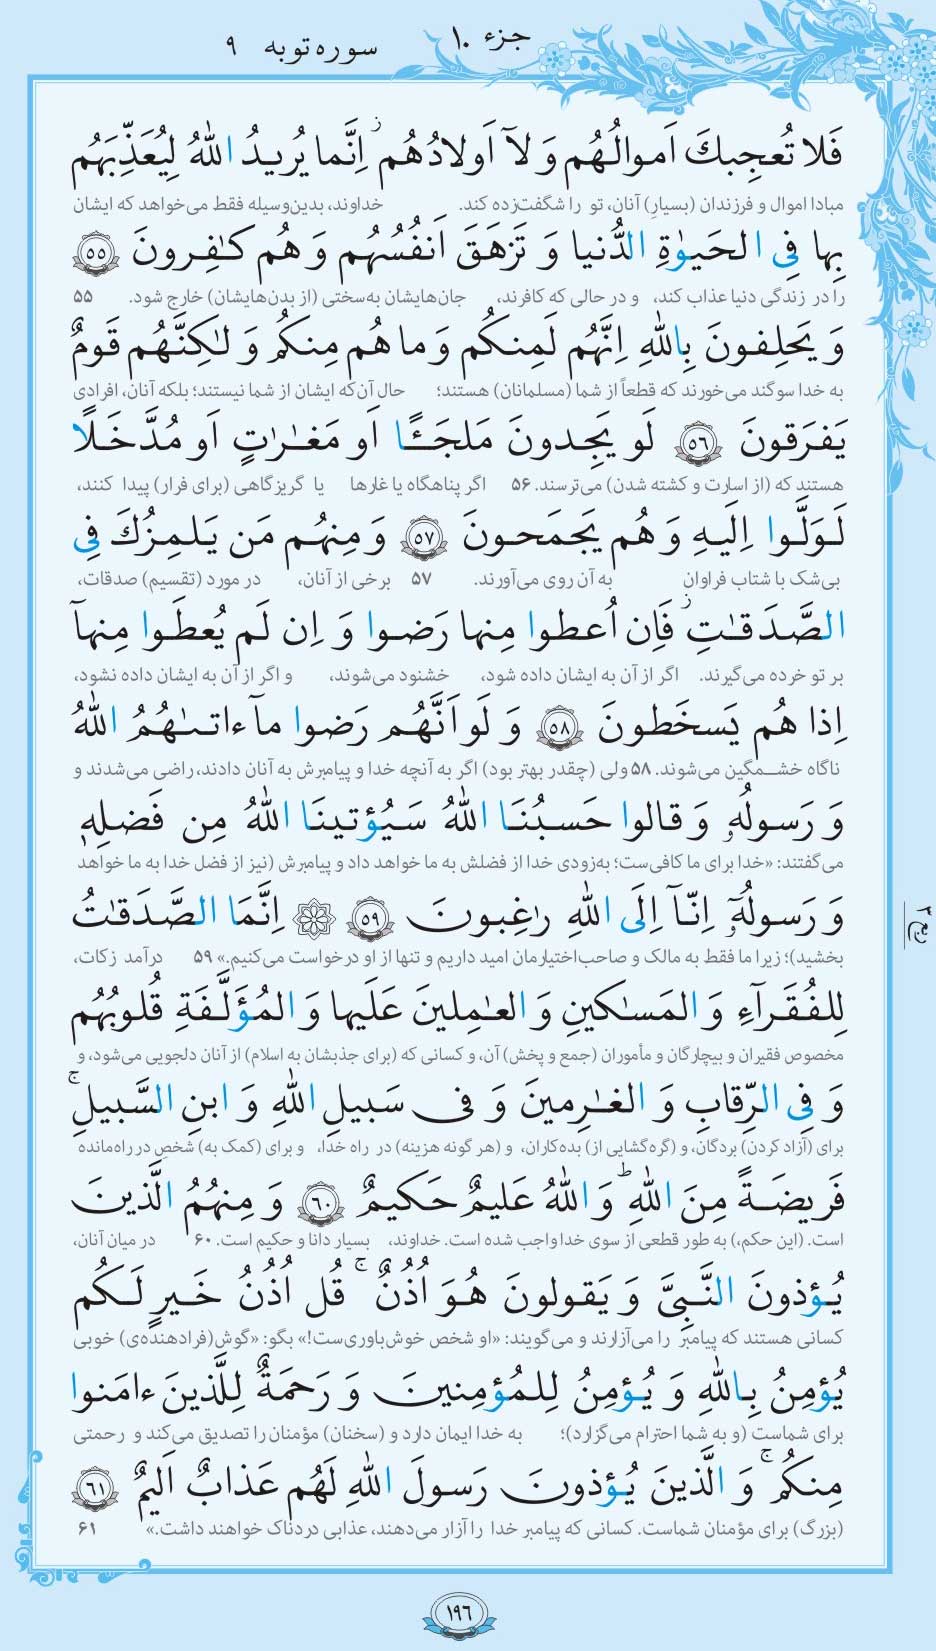 جزء ۱۰
سوره توبه ۹
فَلا تُعجِبكَ اَموالُهُم وَ لآ اَولادُهُم ۚ اِنَّما يُريدُ اللّٰهُ لِيُعَذِّبَهُم
مبادا اموال و فرزندان (بسیارِ) آنان، تو را شگفت‌زده کند. خداوند، بدین‌وسیله فقط می‌خواهد که ایشان
بِها فِى الحَيوٰةِ الدُّنيا وَ تَزهَقَ اَنفُسُهُم وَ هُم كـٰفِرونَ ۵۵
را در زندگی دنیا عذاب کند، و در حالی که کافرند، جان‌هایشان به‌سختی (از بدن‌هایشان) خارج شود. ۵۵
وَ يَحلِفونَ بِاللّٰهِ اِنَّهُم لَمِنكُم وَ ما هُم مِنكُم وَ لـٰكِنَّهُم قَومٌ
به خدا سوگند می‌خورند که قطعاً از شما (مسلمانان) هستند؛ حال آن‌که ایشان از شما نیستند؛ بلکه آنان، افرادی
يَفرَقونَ ۵۶ لَو يَجِدونَ مَلجَـًٔا اَو مَغـٰرٰتٍ اَو مُدَّخَلًا
هستند که (از اسارت و کشته شدن) می‌ترسند. ۵۶ اگر پناهگاه یا غارها یا گریزگاهی (برای فرار) پیدا کنند،
لَوَلَّوا اِلَيهِ وَ هُم يَجمَحونَ ۵۷ وَ مِنهُم مَن يَلمِزُكَ فِى
بی‌شک با شتاب فراوان به آن روی می‌آورند. ۵۷ برخی از آنان، در مورد (تقسیم) صدقات،
الصَّدَقـٰتِ فَاِن اُعطوا مِنها رَضوا وَ اِن لَم يُعطَوا مِنهآ
بر تو خرده می‌گیرند. اگر از آن به ایشان داده شود، خشنود می‌شوند، و اگر از آن به ایشان داده نشود،
اِذا هُم يَسخَطونَ ۵۸ وَ لَو اَنَّهُم رَضوا مآ ءاتىٰهُمُ اللّٰهُ
ناگاه خشـمگین می‌شوند. ۵۸ ولی (چقدر بهتر بود) اگر به آنچه خدا و پیامبرش به آنان دادند، راضی می‌شدند و
وَ رَسولُهٗ وَ قالوا حَسبُنَا اللّٰهُ سَيُؤتينَا اللّٰهُ مِن فَضلِهٖ
می‌گفتند: «خدا برای ما کافی‌ست؛ به‌زودی خدا از فضلش به ما خواهد داد و پیامبرش (نیز از فضل خدا به ما خواهد
وَ رَسولُهٗٓ اِنّآ اِلَى اللّٰهِ رٰغِبونَ ۵۹ اِنَّمَا الصَّدَقـٰتُ
بخشید)؛ زیرا ما فقط به مالک و صاحب‌اختیارمان امید داریم و تنها از او درخواست می‌کنیم.» ۵۹ درآمد زکات،
ربع ۳
لِلفُقَرآءِ وَ المَسـٰكينِ وَ العـٰمِلينَ عَلَيها وَ المُؤَلَّفَةِ قُلوبُهُم
مخصوص فقیران و بیچارگان و مأموران (جمع و پخش) آن، و کسانی که (برای جذبشان به اسلام) از آنان دلجویی می‌شود، و
وَ فِى الرِّقابِ وَ الغـٰرِمينَ وَ فى سَبيلِ اللّٰهِ وَ ابنِ السَّبيلِ ۚ
برای (آزاد کردن) بردگان، و (گره‌گشایی از) بده‌کاران، و (هر گونه هزینه) در راه خدا، و برای (کمک به) شخصِ در راه‌مانده
فَريضَةً مِنَ اللّٰهِ ؕ وَ اللّٰهُ عَليمٌ حَكيمٌ ۶۰ وَ مِنهُمُ الَّذينَ
است. (این حکم،) به طور قطعی از سوی خدا واجب شده است. خداوند، بسیار دانا و حکیم است. ۶۰ در میان آنان،
يُؤذونَ النَّبِىَّ وَ يَقولونَ هُوَ اُذُنٌ ۚ قُل اُذُنُ خَيرٍ لَكُم
کسانی هستند که پیامبر را می‌آزارند و می‌گویند: «او شخص خوش‌باوری‌ست!» بگو: «گوش‌(فرادهنده‌ی) خوبی
يُؤمِنُ بِاللّٰهِ وَ يُؤمِنُ لِلمُؤمِنينَ وَ رَحمَةٌ لِلَّذينَ ءامَنوا
برای شماست (و به شما احترام می‌گزارد)؛ به خدا ایمان دارد و (سخنان) مؤمنان را تصدیق می‌کند و رحمتی
مِنكُم ۚ وَ الَّذينَ يُؤذونَ رَسولَ اللّٰهِ لَهُم عَذابٌ اَليمٌ ۶۱
(بزرگ) برای مؤمنان شماست. کسانی که پیامبر خدا را آزار می‌دهند، عذابی دردناک خواهند داشت.» ۶۱
۱۹۶